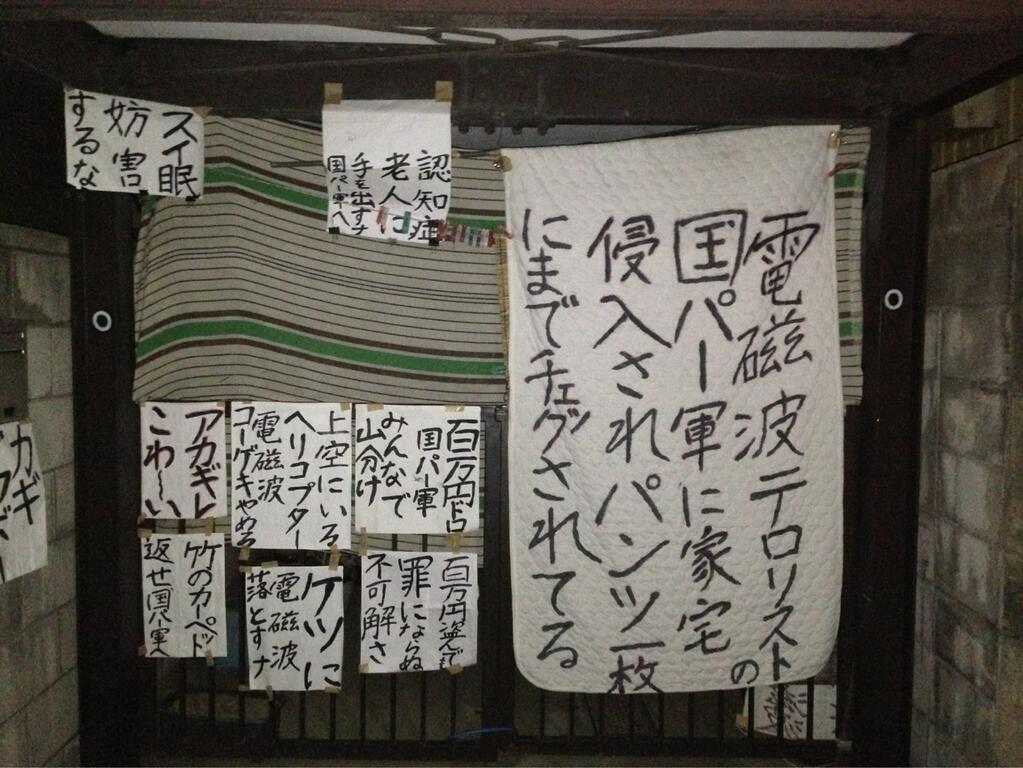 電磁波テロリストの
国パー軍に家宅
侵入されパンツ一枚
にまでチェグされてる
認知症
老人に
手を出すナ
国パー軍へ
スイ眠
妨害
するな
百万円ドロ
国パー軍
みんなで
山分け
上空にいる
ヘリコプター
電磁波
コーゲキやめろ
アカギレ
こわ〜い
百万円盗んでも
罪にならぬ
不可解さ
ケツに
電磁波
落とすナ
竹のカーペット
返せ国パー軍へ
カギ